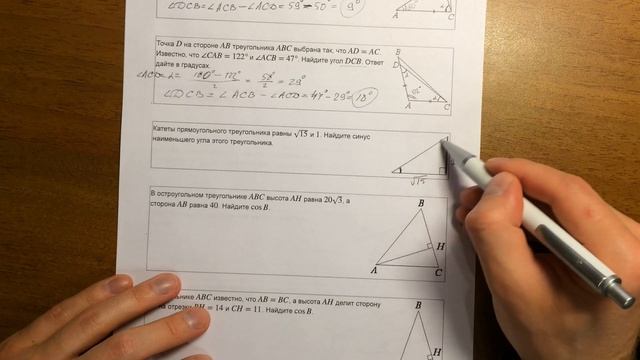 ∠DCB = ∠ACB − ∠ACD = 59° − 50° = 9°
A
C
Точка D на стороне AB треугольника ABC выбрана так, что AD = AC.
Известно, что ∠CAB = 122° и ∠ACB = 47°. Найдите угол DCB. Ответ
дайте в градусах.
∠DCB = ∠ACB − ∠ACD = 47° − 29° = 18°
B
D
A
C
Катеты прямоугольного треугольника равны √15 и 1. Найдите синус
наименьшего угла этого треугольника.
√15
В остроугольном треугольнике ABC высота AH равна 20√3, а
сторона AB равна 40. Найдите cos B.
B
H
A
C
ABC известно, что AB = BC, а высота AH делит сторону
на отрезки BH = 14 и CH = 11. Найдите cos B.
B
H